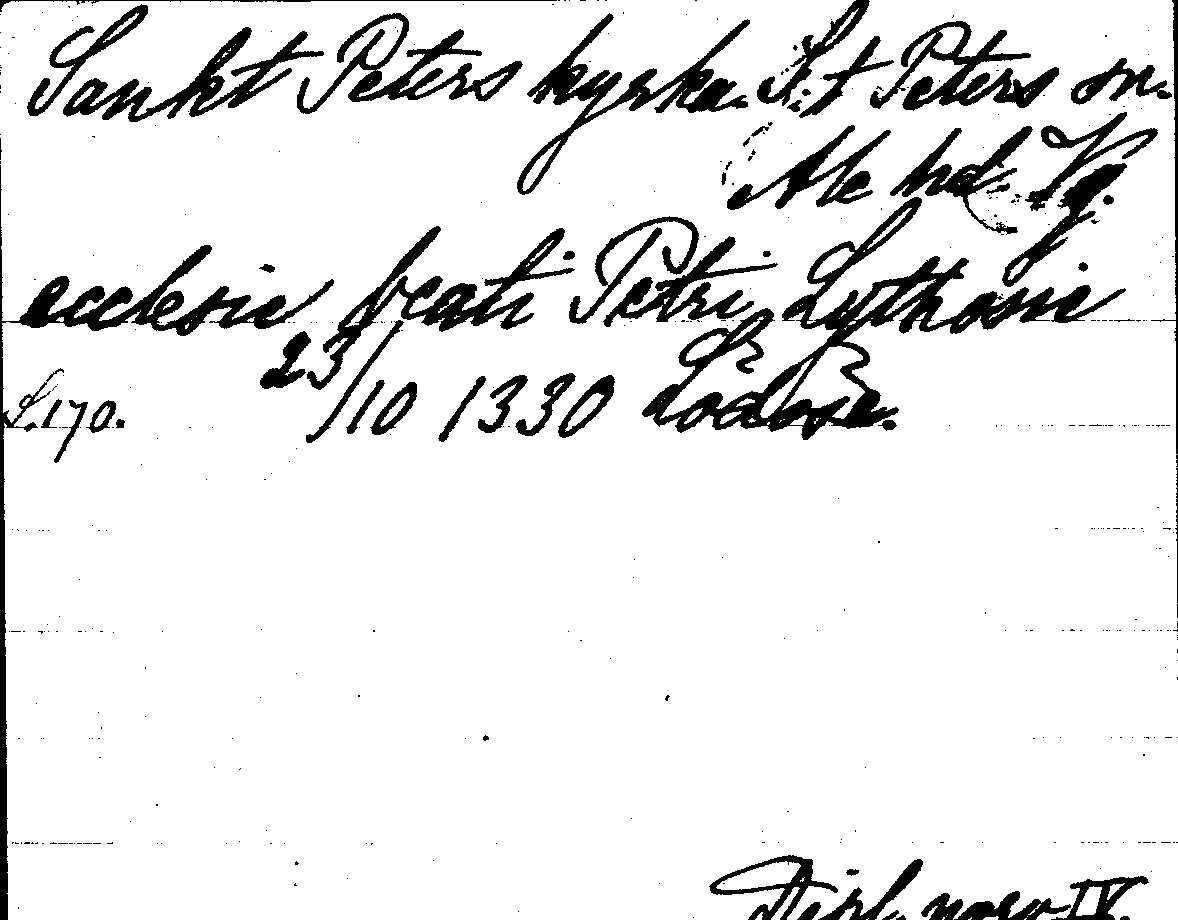 Sankt Peters kyrka. S:t Peters sn.
Ale hd. Vg.
ecclesie beati Petri Lythosie
23/10 1330 Lödöse.
S. 170.
Dipl. norv. IV.